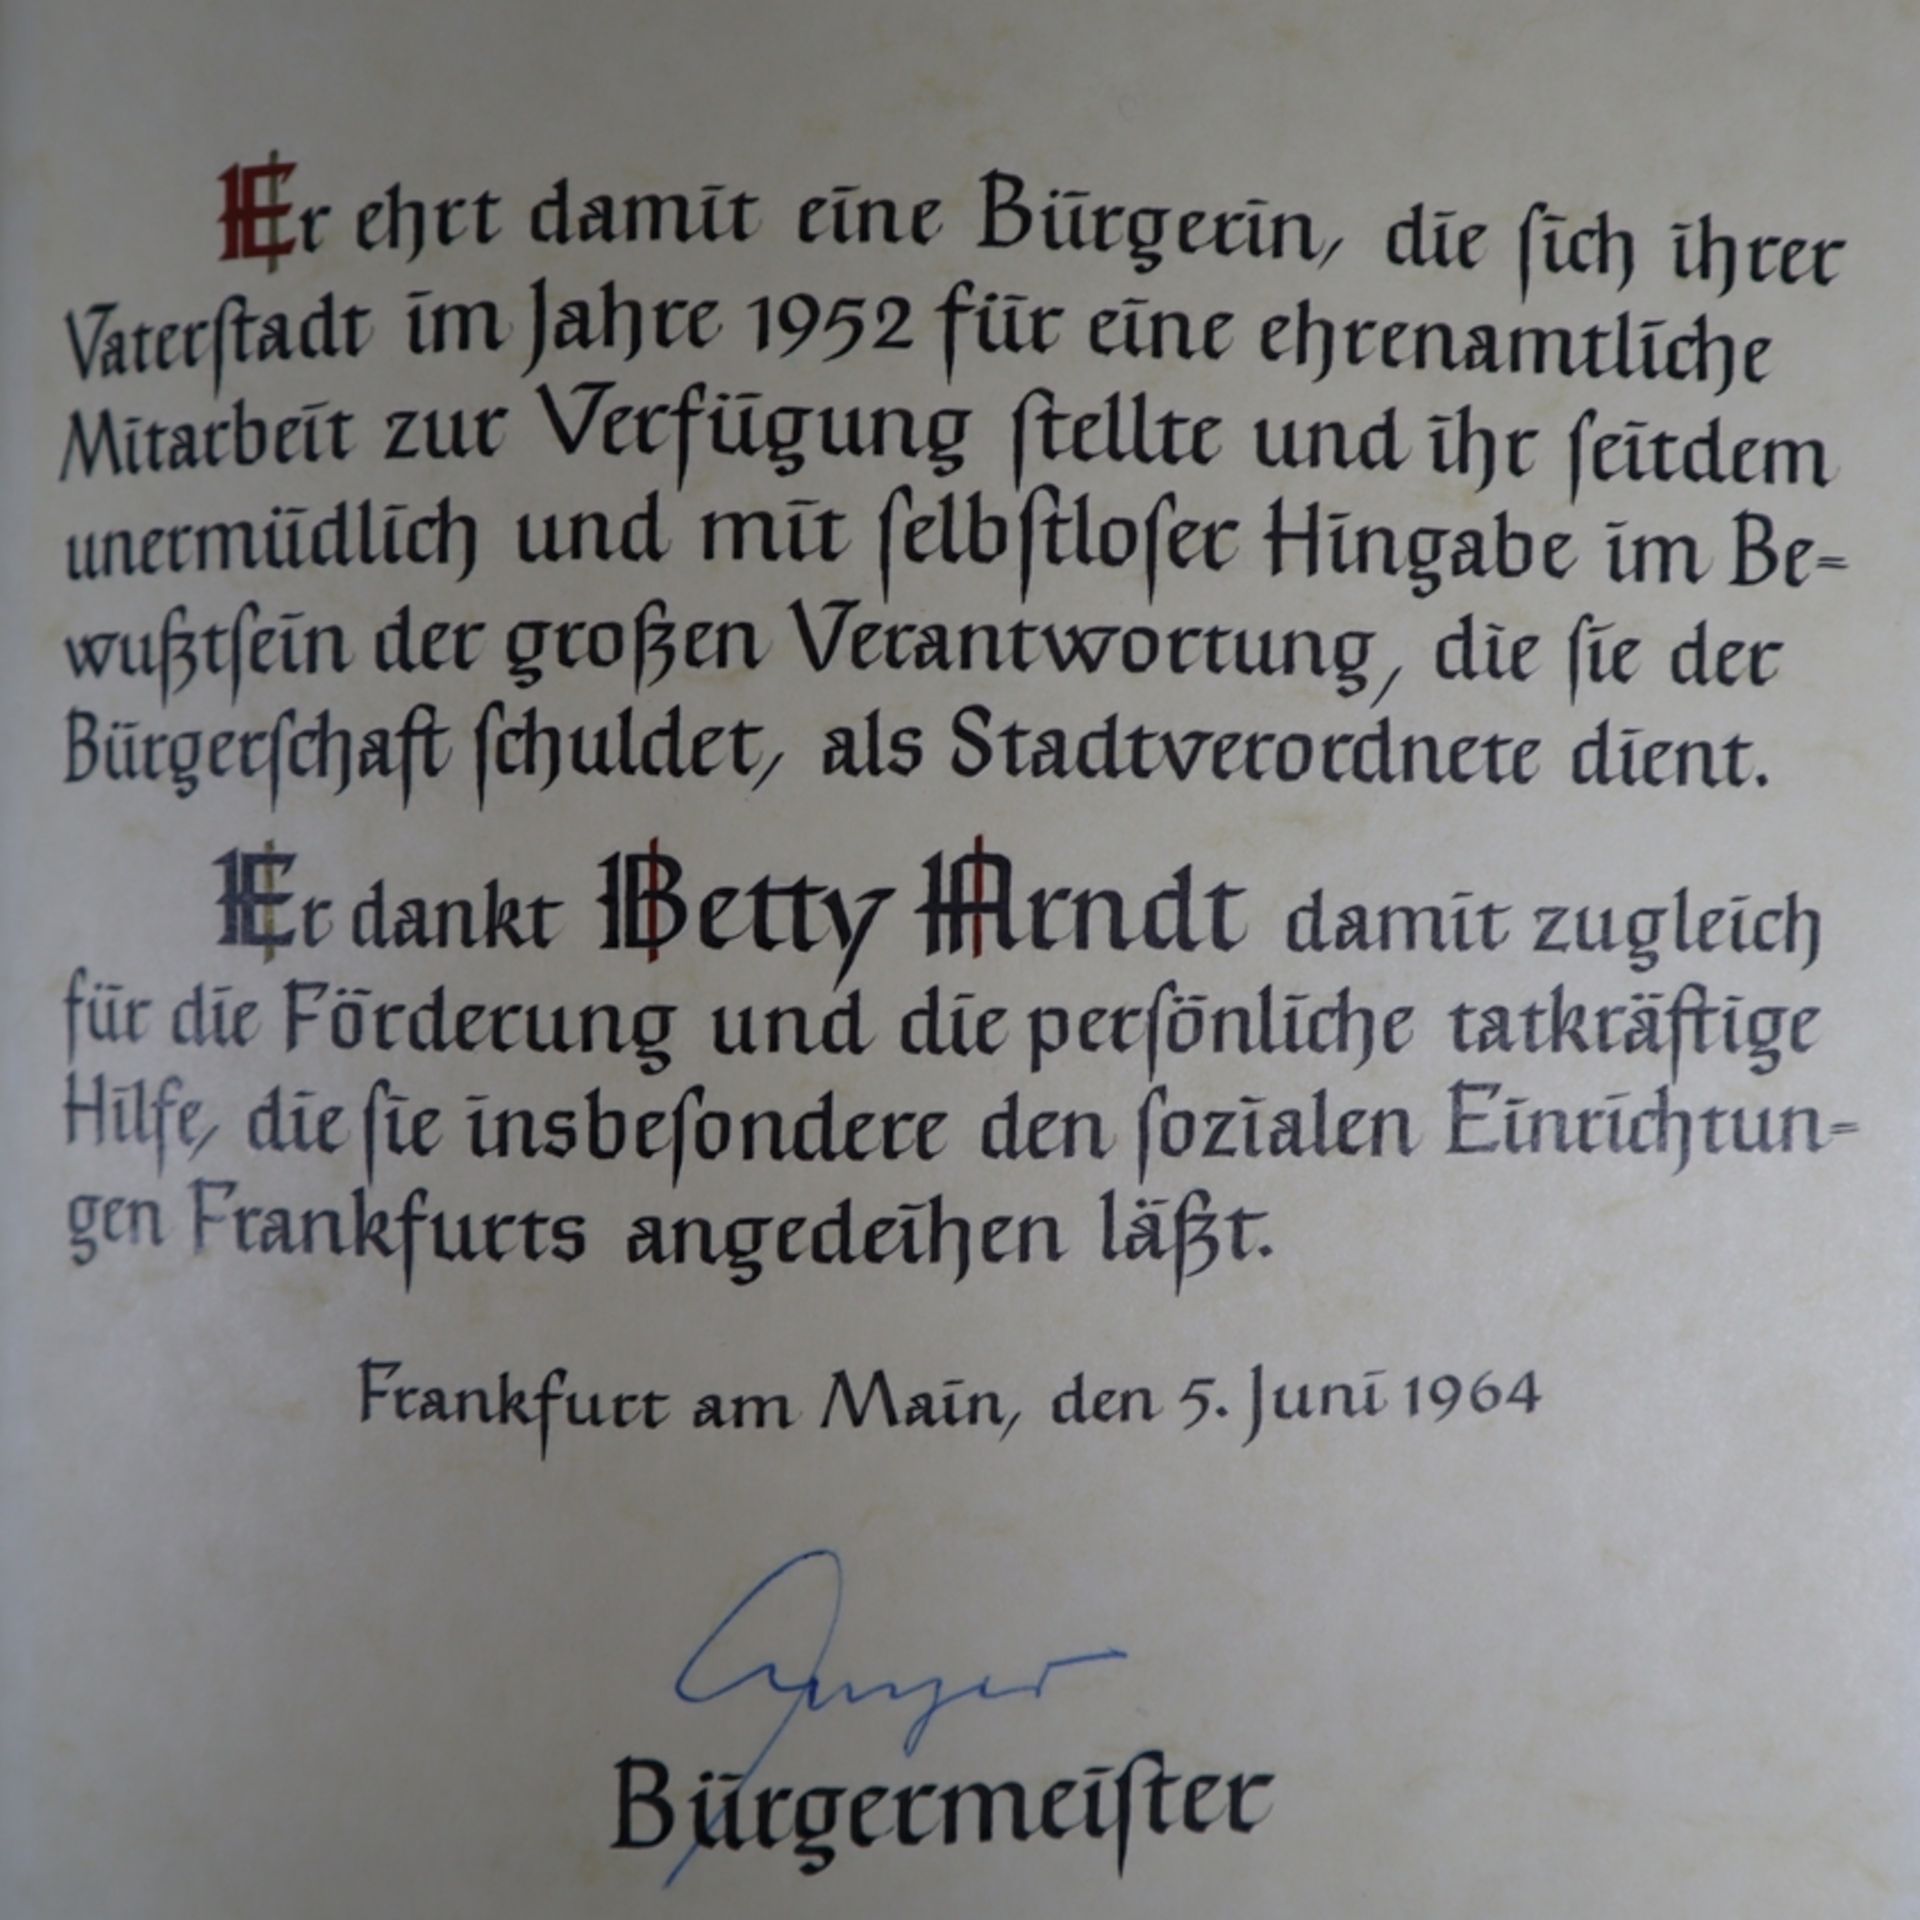 Er ehrt damit eine Bürgerin, die ſich ihrer
Vaterſtadt im Jahre 1952 für eine ehrenamtliche
Mitarbeit zur Verfügung ſtellte und ihr ſeitdem
unermüdlich und mit ſelbſtloſer Hingabe im Be=
wußtſein der großen Verantwortung, die ſie der
Bürgerſchaft ſchuldet, als Stadtverordnete dient.
Er dankt Betty Arndt damit zugleich
für die Förderung und die perſönliche tatkräftige
Hilfe, die ſie insbeſondere den ſozialen Einrichtun=
gen Frankfurts angedeihen läßt.
Frankfurt am Main, den 5. Juni 1964
Bürgermeiſter